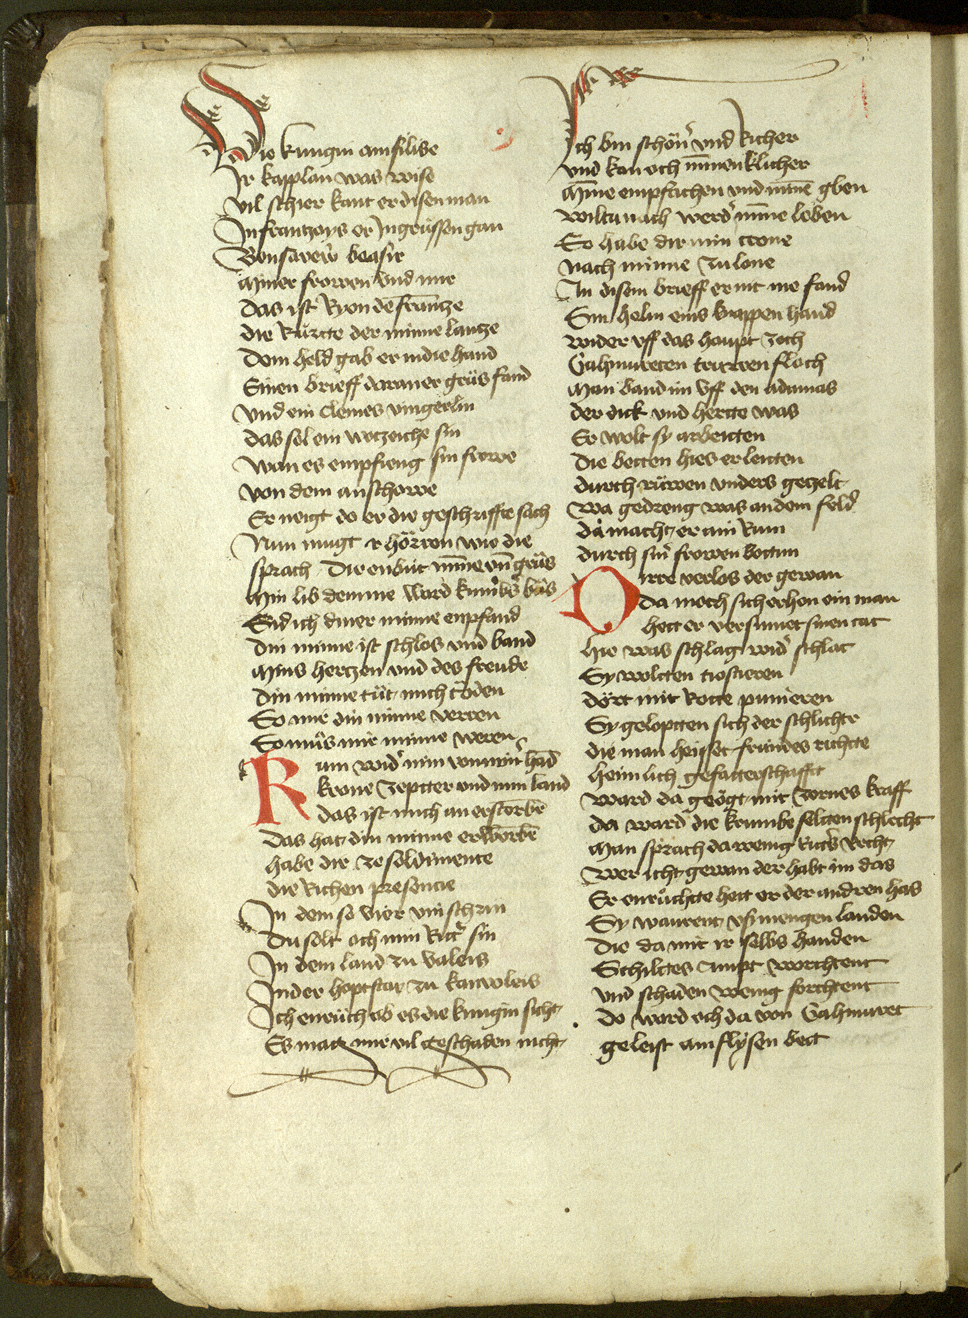 Die kungin amflise
Ir kapplan was wise
vil schier kant er disen man
In frantzoys er In grüssen gan
Bonsavenẏ beasir
Miner frowen vnd mir
das ist Ryon de frantze
die Rürte der minne lantze
Dem held gab er in die hand
Sinen brieff daran er grüs fand
Vnd ein cleines vingerlin
das sol ein wortzeiche sin
Wan es empfieng sin frowe
von dem anschowe
Er neigt do er die geschrifft sach
Nun mugt ir hörren wie die
sprach Die enbüt minne vnd grüs
Min lib dem nie ward kumbers büs
Sid ich diner minne enpfand
Din minne ist schlos vnd band
Mins hertzen vnd des freude
din minne tüt mich töden
So mir din minne verren
So müs mir minne weren
Kum wider nim von miner hand
krone Zeptter vnd min land
das ist mich an erstorben
Das hat din minne erworben
habe dir ze soldimente
die Richen presencie
In dem so vier vin schrin
Du solt och min Ritter sin
In dem land zu valeis
In der hoptstat zu kanvoleis
Ich enrüch ob es die kungin sicht
Es mag mir vil geschaden nicht
Ich bin schöner vnd Richer
vnd kan och minnenklicher
Minne empfachen vnd minne geben
wiltu nach werder minne leben
So habe dir min crone
nach minne zu lone
In disem brieff er nit me fand
Sin helm eins knappen hand
wider vff das haupt zoch
Gahmureten truren floch
Man band im vff den adamas
der dick vnd hertte was
Er wolt sy arbeitten
Die betten hies er leitten
durch rüwen vnders getzelt
wa gedreng was an dem feld
da macht er ain Rum
durch siner frowen bottum
Dirre verlos der gewan
da moch sich erholen ein man
hett er versumet sinen tat
hie was schlag wider schlat
Sy wolten tiostieren
dört mit Rotte punieren
Sy geloptten sich der schlichte
die man heisset frundes richtte
heimlich gefatterschafft
ward da geögt mit Zornes krafft
da ward die krumbe seltten schlecht
Man sprach da wenig Ritters Recht
wer icht gewan der habt im das
Er enrüchte hett er der andren has
Sy warent vss mengen landen
Die da mit ir selbs handen
Schiltes ampt worchtent
vnd schaden wenig forchtent
do ward och da von Gahmuret
geleist amflysen bett